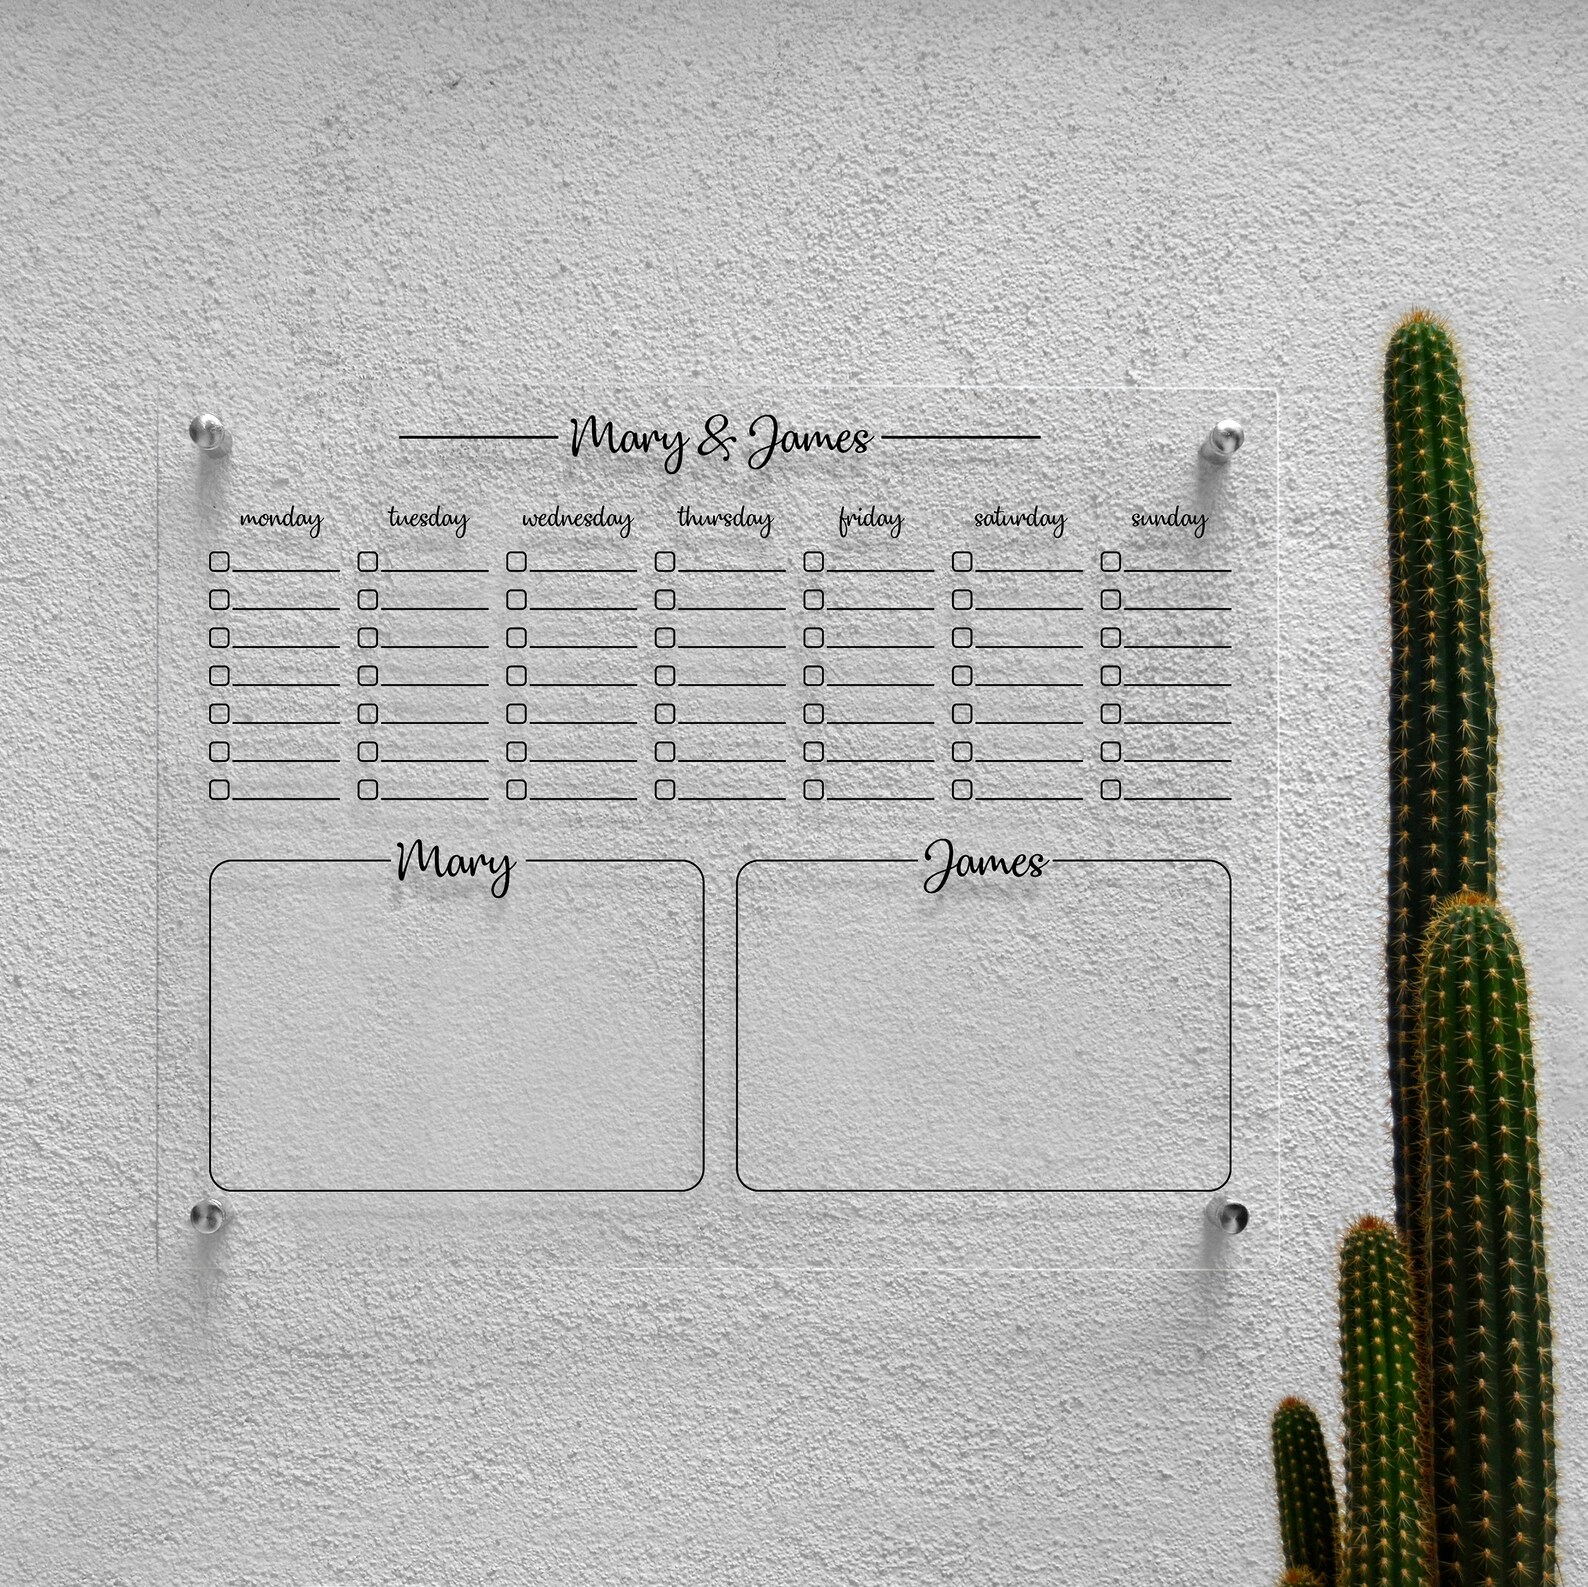 Mary & James
monday tuesday wednesday thursday friday saturday sunday
Mary James